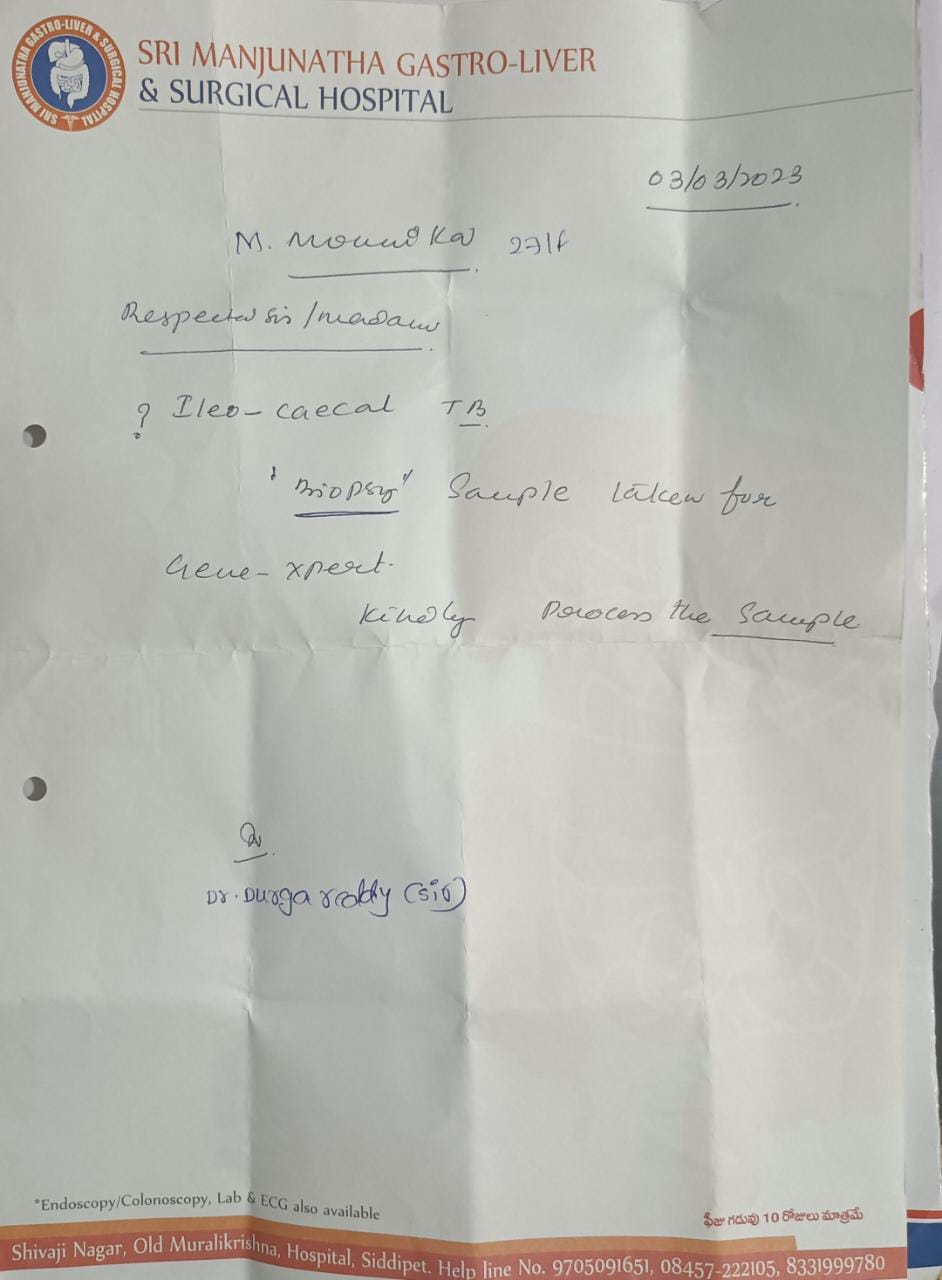 SRI MANJUNATHA GASTRO-LIVER & SURGICAL HOSPITAL
SRI MANJUNATHA GASTRO-LIVER
& SURGICAL HOSPITAL
03/03/2023
M. Mounika 27/f
Respected sir/madam
? Ileo-caecal TB.
"Biopsy" Sample taken for
Gene-xpert.
Kindly Process the Sample
Dr. Durga reddy (sir)
*Endoscopy/Colonoscopy, Lab & ECG also available
ఫీజు గడువు 10 రోజులు మాత్రమే
Shivaji Nagar, Old Muralikrishna, Hospital, Siddipet. Help line No. 9705091651, 08457-222105, 8331999780